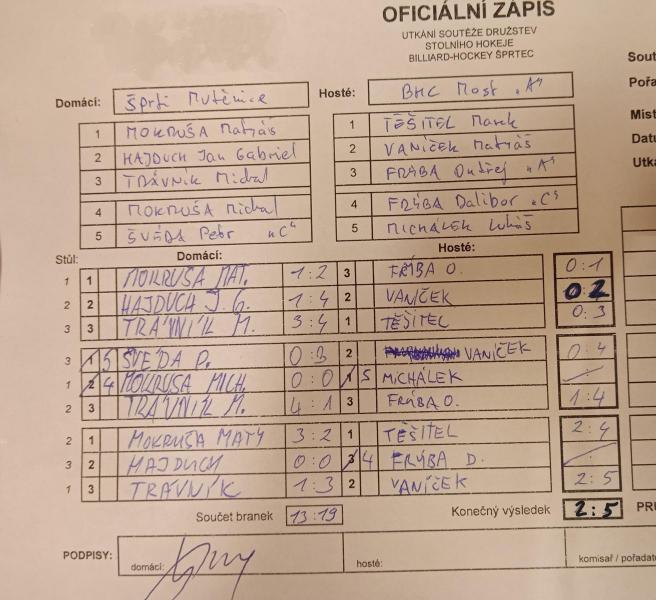 OFICIÁLNÍ ZÁPIS
UTKÁNÍ SOUTĚŽE DRUŽSTEV
STOLNÍHO HOKEJE
BILLIARD-HOCKEY ŠPRTEC
Sout
Pořa
Míst
Datu
Utká
Domácí: Šprti Mutěnice Hosté: BHC Most „A"
1 MOKRUŠA Matyáš 1 TĚŠITEL Marek
2 HAJDUCH Jan Gabriel 2 VANÍČEK Matyáš
3 TRÁVNÍK Michal 3 FRÝBA Ondřej „A"
4 MOKRUŠA Michal 4 FRÝBA Dalibor „C"
5 ŠVÉDA Petr „C" 5 MICHÁLEK Lukáš
Stůl: Domácí: Hosté:
1 1 MOKRUŠA MAT. 1:2 3 FRÝBA O. 0:1
2 2 HAJDUCH J. G. 1:4 2 VANÍČEK 0:2
3 3 TRÁVNÍK M. 3:4 1 TĚŠITEL 0:3
3 1 5 ŠVÉDA P. 0:3 2 VANÍČEK 0:4
1 2 4 MOKRUŠA MICH. 0:0 1 5 MICHÁLEK
2 3 TRÁVNÍK M. 4:1 3 FRÝBA O. 1:4
2 1 MOKRUŠA MATY 3:2 1 TĚŠITEL 2:4
3 2 HAJDUCH 0:0 3 4 FRÝBA D.
1 3 TRÁVNÍK 1:3 2 VANÍČEK 2:5
Součet branek 13:19 Konečný výsledek 2:5
PODPISY: domácí: hosté: komisař / pořadate